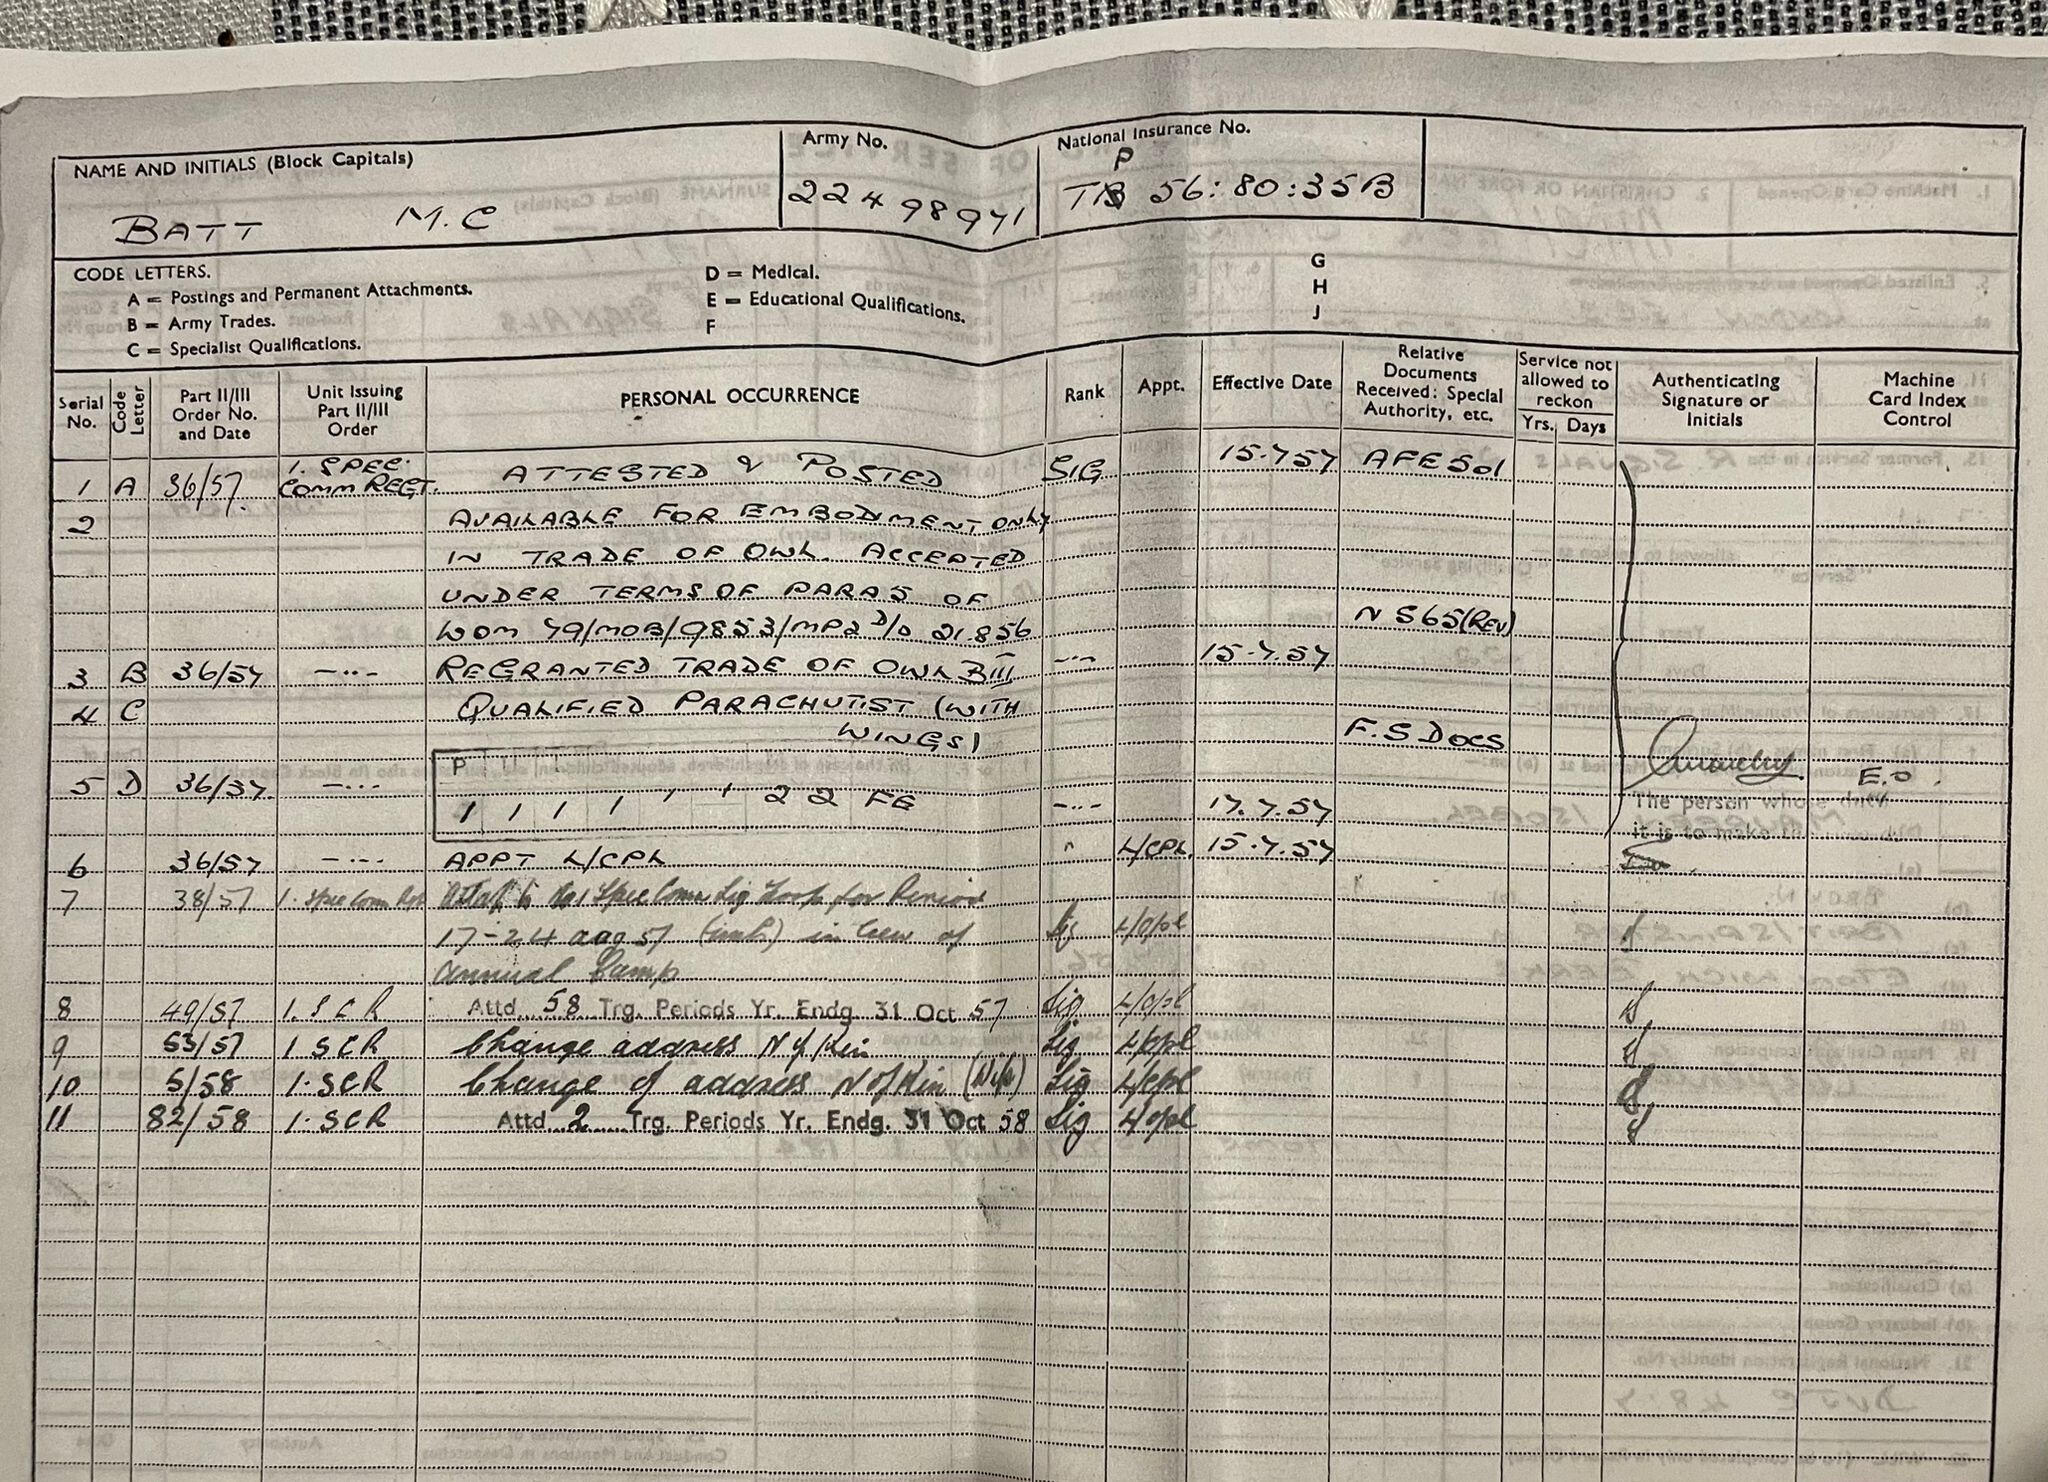 NAME AND INITIALS (Block Capitals)
BATT M.C
Army No.
22498971
National Insurance No.
P
TB 56:80:35B
CODE LETTERS.
A = Postings and Permanent Attachments.
B = Army Trades.
C = Specialist Qualifications.
D = Medical.
E = Educational Qualifications.
F
G
H
J
Serial No. Code Letter Part II/III Order No. and Date Unit Issuing Part II/III Order PERSONAL OCCURRENCE Rank Appt. Effective Date Relative Documents Received: Special Authority, etc. Service not allowed to reckon Yrs. Days Authenticating Signature or Initials Machine Card Index Control
1 A 36/57 1. SPEC. COMM REGT. ATTESTED & POSTED SIG 15.7.57 AFE501
2 AVAILABLE FOR EMBODIMENT ONLY
IN TRADE OF OWL. ACCEPTED
UNDER TERMS OF PARA 5 OF
WOM 79/MOB/9853/MP2 D/D 21.8.56 NS65(REV)
3 B 36/57 —··- REGRANTED TRADE OF OWL BIII —··- 15.7.57
4 C QUALIFIED PARACHUTIST (WITH
WINGS) F.S DOCS
P U
5 D 36/57 —··- 1 1 1 1 1 1 22 FE —··- 17.7.57 E.O
The person whose duty
it is to make
6 36/57 —··- APPT L/CPL " L/CPL 15.7.57
7 38/57 1. Spec Comm Rgt Attd to Spec Comm Sig Troop for Period
17-24 Aug 57 (incl) in lieu of Sig L/Cpl
Annual Camp
8 49/57 1. SCR Attd 58 Trg. Periods Yr. Endg. 31 Oct 57 Sig L/Cpl
9 53/57 1 SCR Change address N of Kin Sig L/Cpl
10 5/58 1. SCR Change of address N of Kin (Wife) Sig L/Cpl
11 82/58 1. SCR Attd 2 Trg. Periods Yr. Endg. 31 Oct 58 Sig L/Cpl